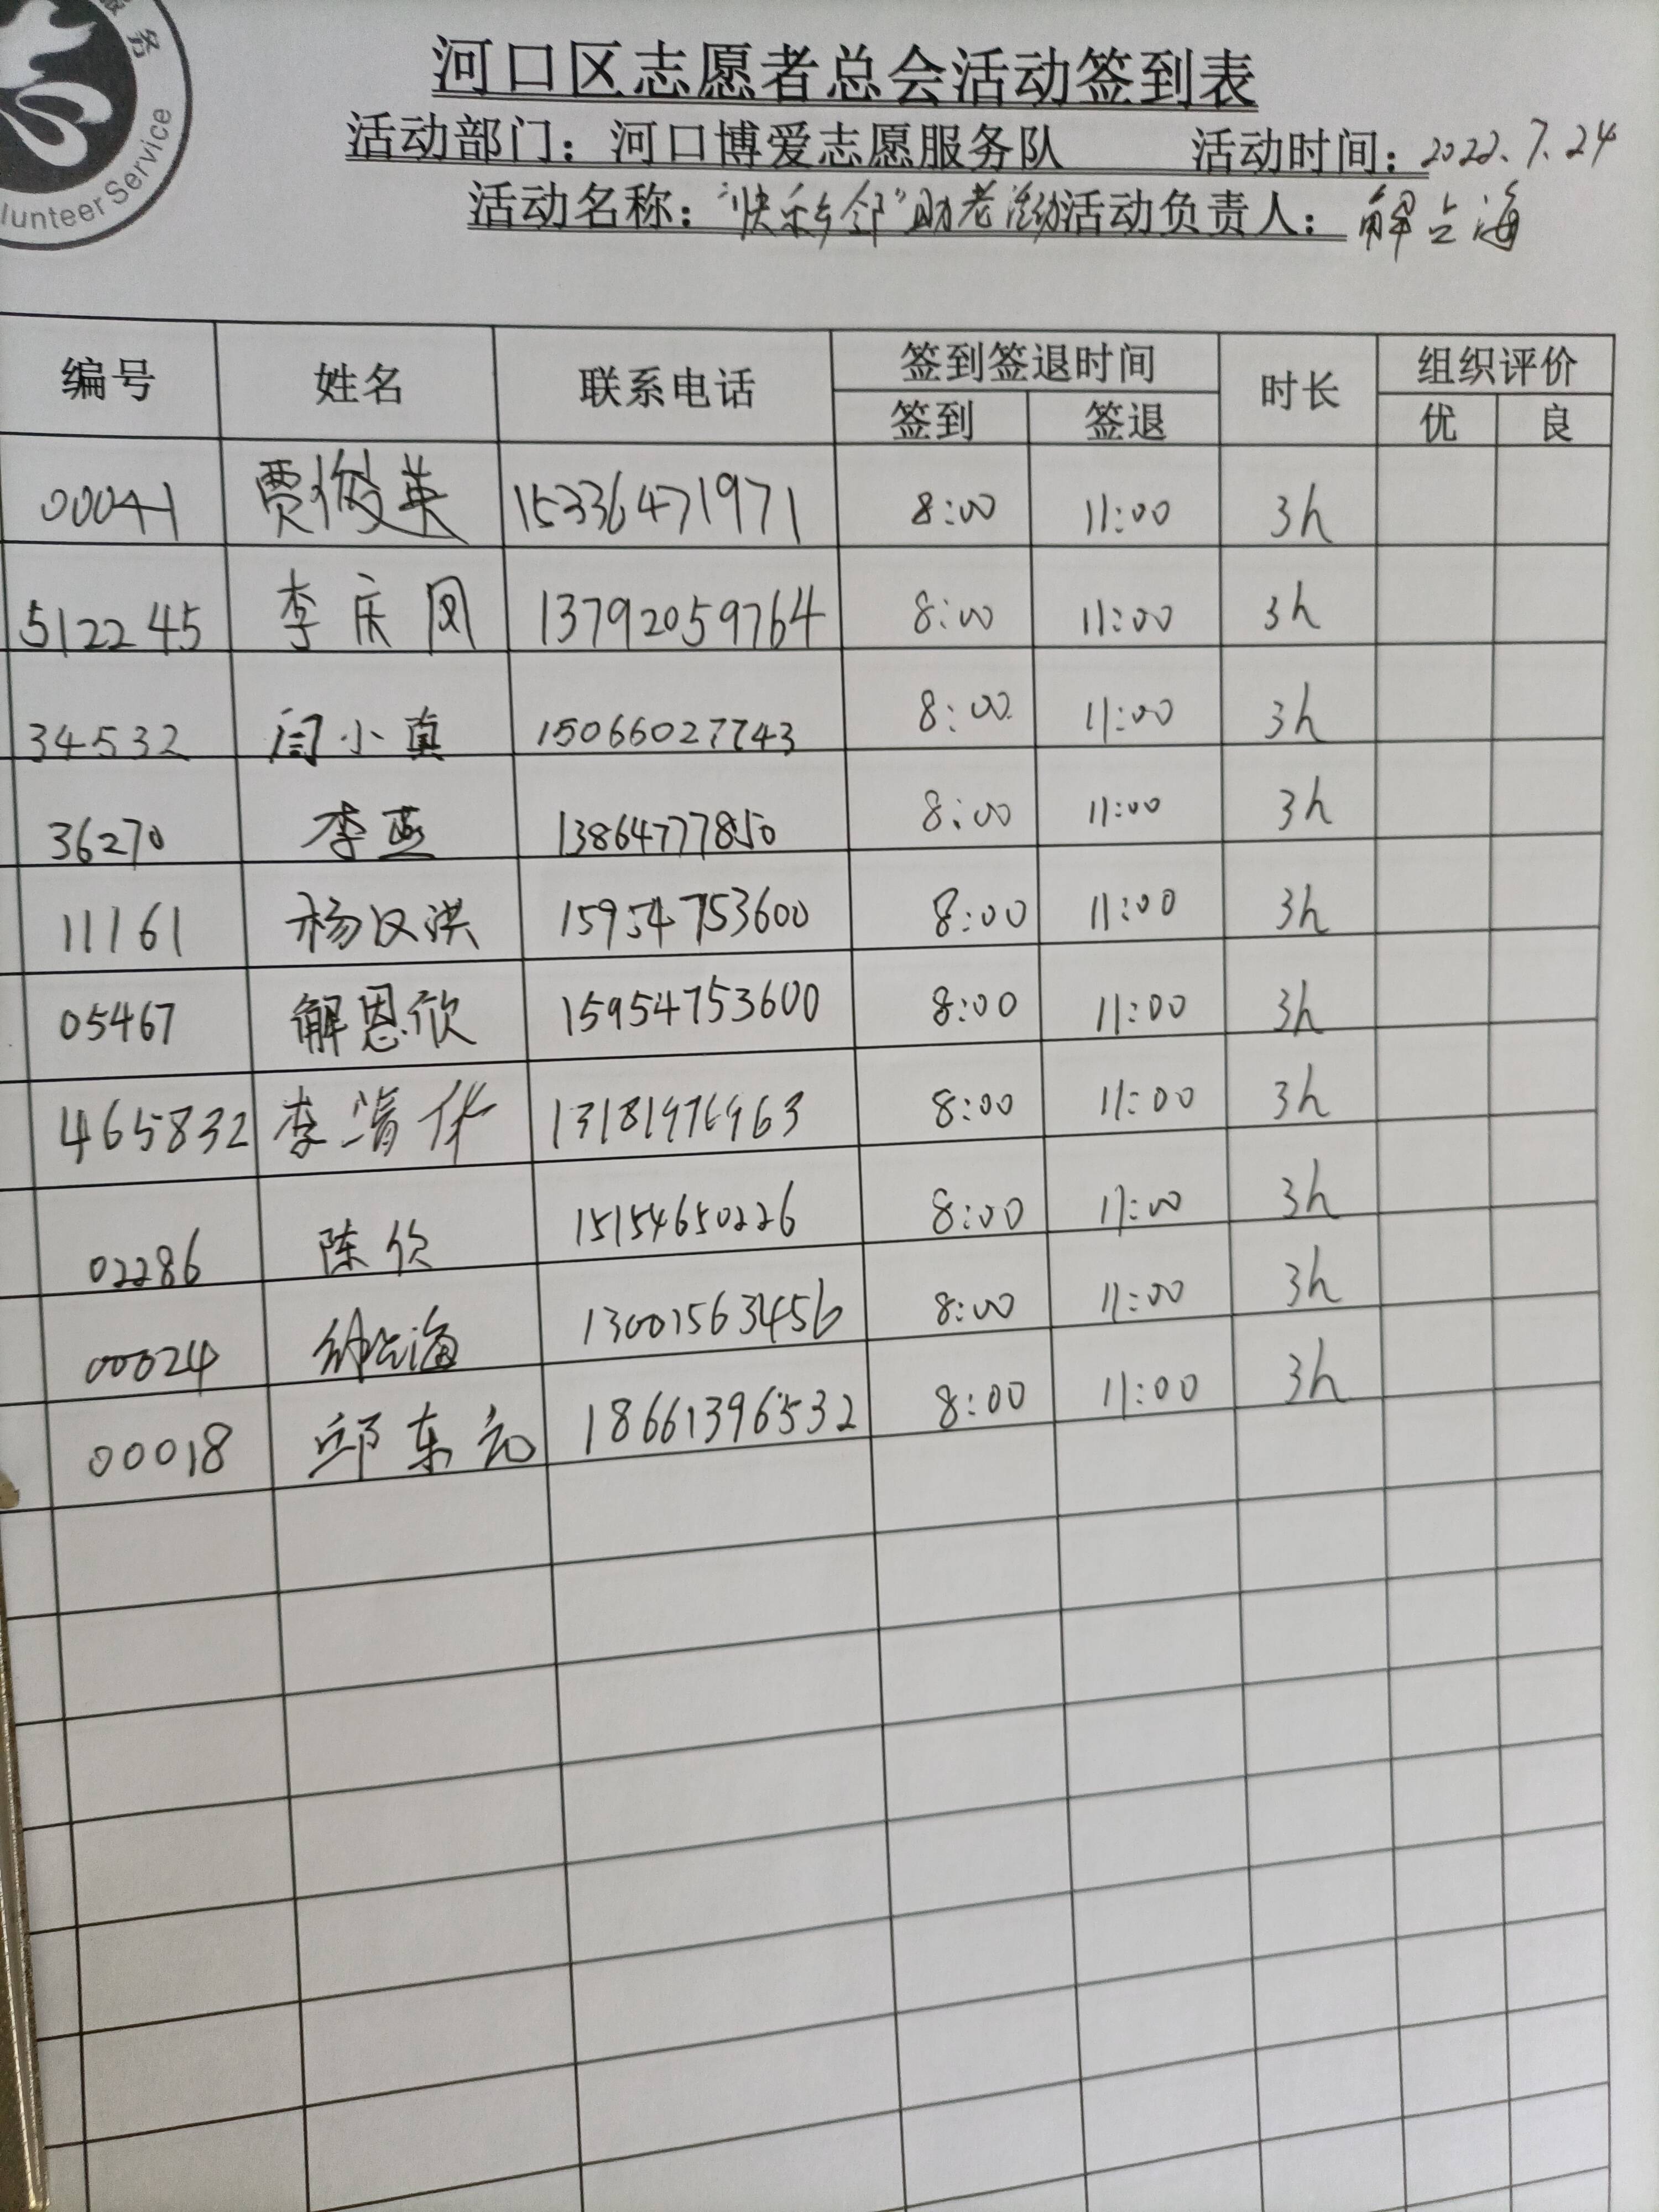 服务
lunteer Service
河口区志愿者总会活动签到表
活动部门：河口博爱志愿服务队 活动时间：2022.7.24
活动名称：“快乐乡邻”助老活动 活动负责人：解占海
编号 姓名 联系电话 签到签退时间 时长 组织评价
签到 签退 优 良
00041 贾俊英 15336471971 8:00 11:00 3h
512245 李庆风 13792059764 8:00 11:00 3h
34532 闫小真 15066027743 8:00 11:00 3h
36270 李燕 13864777850 8:00 11:00 3h
11161 杨汉洪 15954753600 8:00 11:00 3h
05467 解恩欣 15954753600 8:00 11:00 3h
465832 李清华 8:00 11:00 3h
02286 陈欣 15154650226 8:00 11:00 3h
00024 解占海 13001563456 8:00 11:00 3h
00018 邱东元 18661396532 8:00 11:00 3h